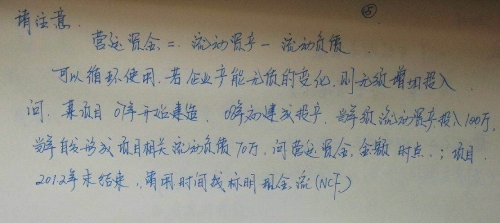 请注意. ⑤
营运资金 = 流动资产 - 流动负债
可以循环使用. 若企业产能无质的变化, 则无须增加投入
问. 某项目 07年开始建造. 08年初建成投产, 当年须流动资产投入100万,
当年自发形成项目相关流动负债70万. 问营运资金. 金额 时点. ; 项目
2012年末结束, 请用时间坐标明现金流(NCF.)